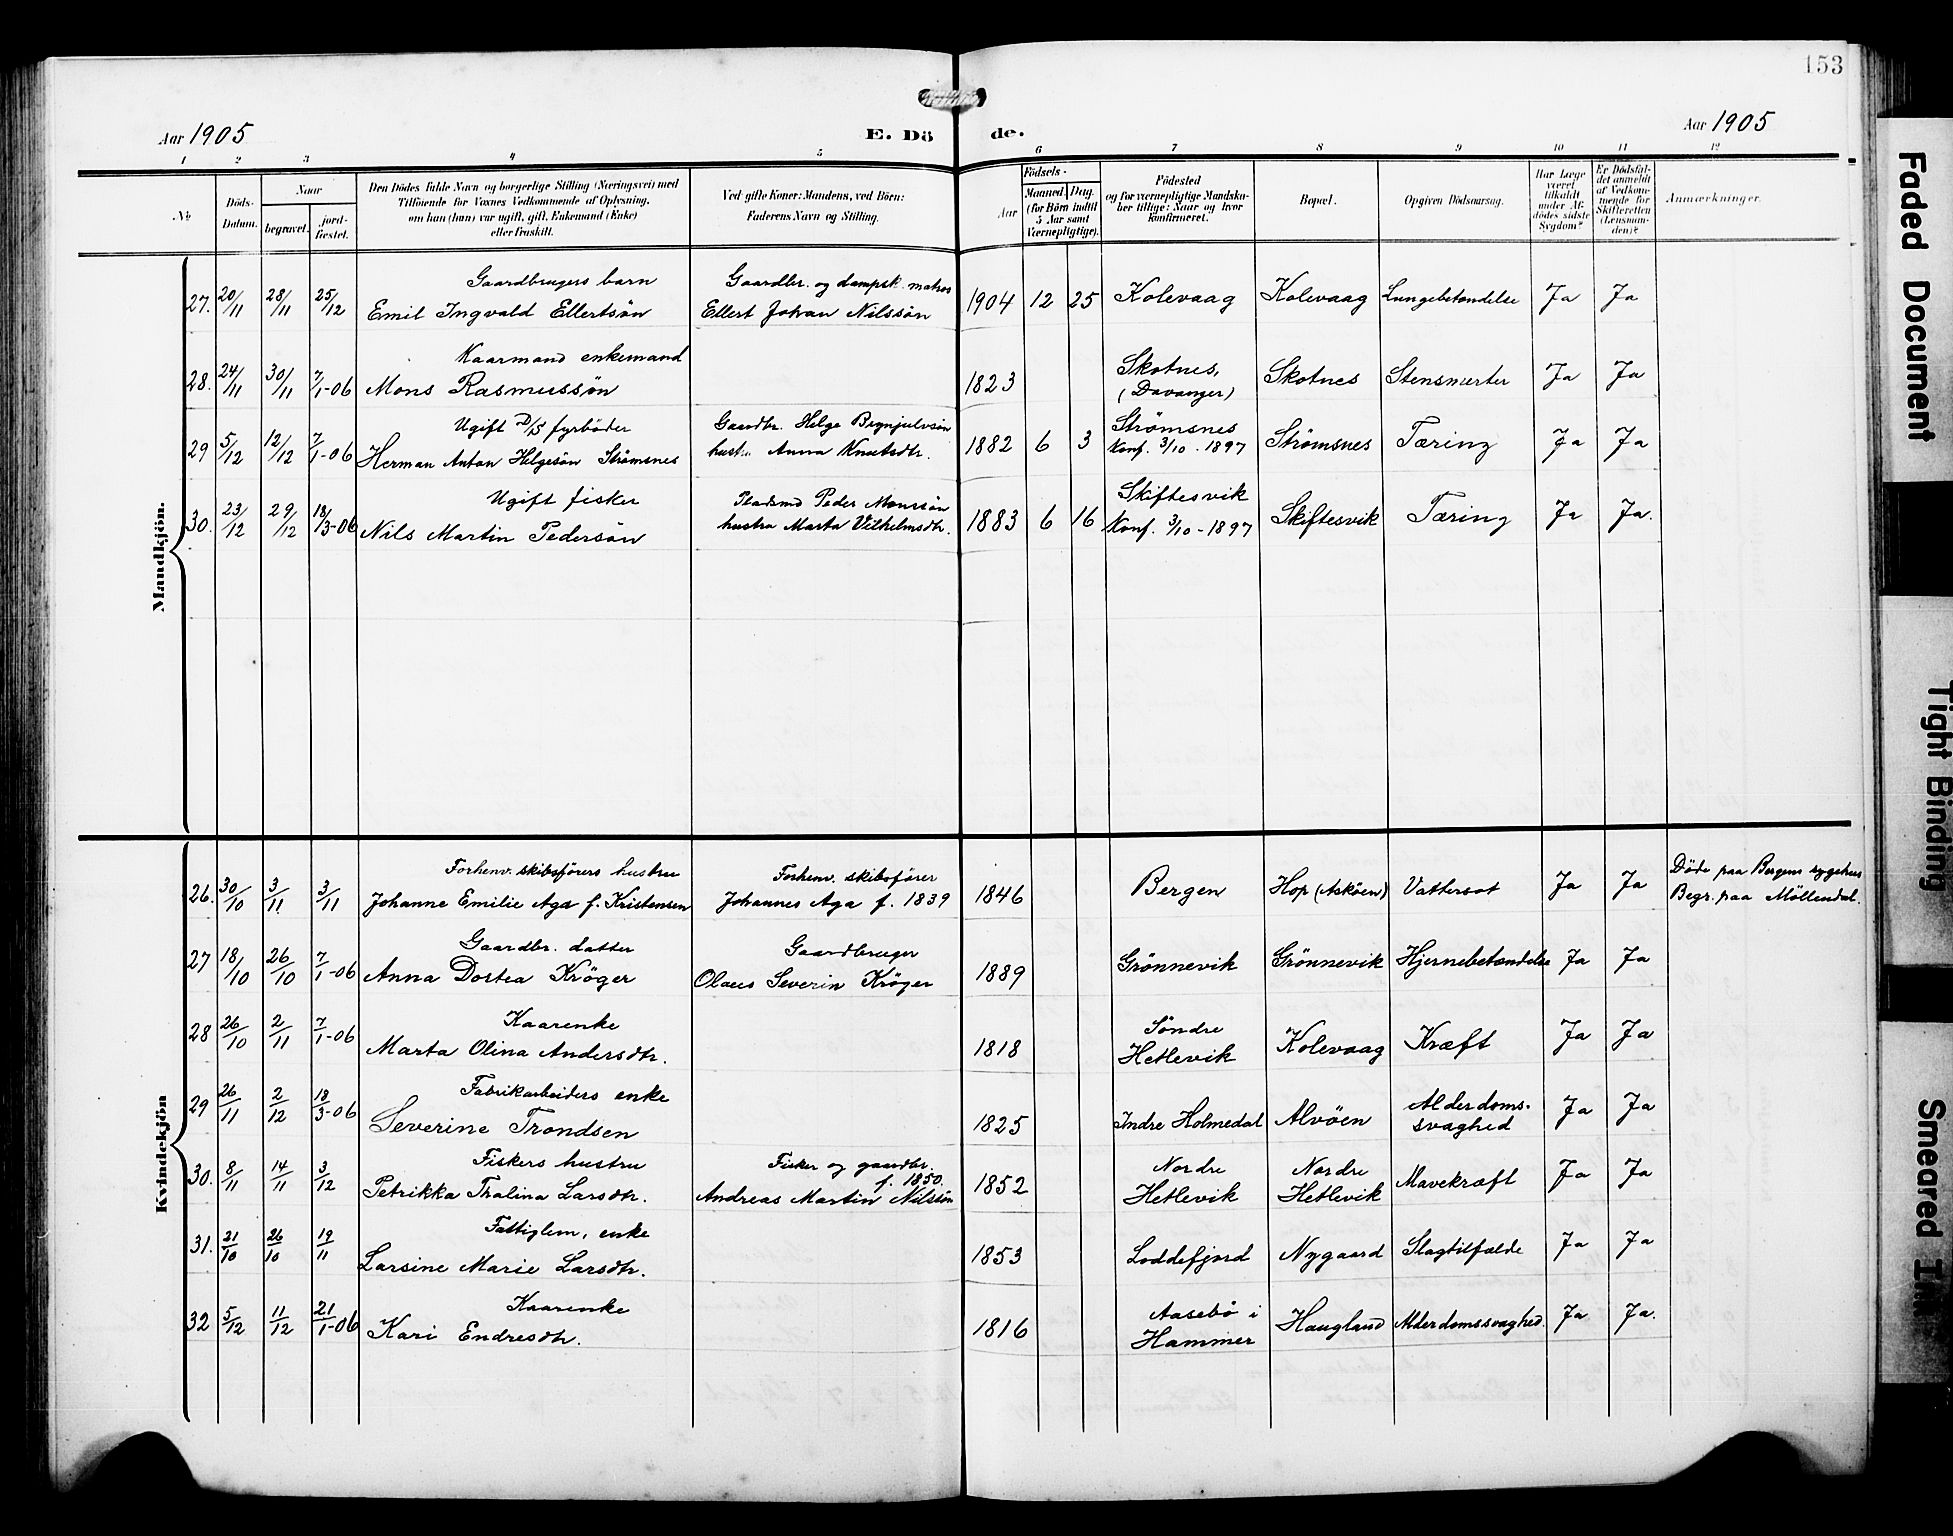 153
Aar 1905
E. Dö
de.
Aar 1905
1 2 3 4 5 6 7 8 9 10 11 12
No
Döds-
Datum.
Naar
begravet.
jord-
fæstet.
Den Dödes fulde Navn og borgerlige Stilling (Næringsvei) med
Tilföiende for Voxnes Vedkommende af Oplysning,
om han (hun) var ugift, gift, Enkemand (Enke)
eller fraskilt.
Ved gifte Koner: Mandens, ved Börn:
Faderens Navn og Stilling.
Födsels-
Aar
Maaned. Dag.
(for Börn indtil
5 Aar samt
Værnepligtige).
Födested
og for værnepligtige Mandska-
ber tillige: Naar og hvor
konfirmeret.
Bopæl.
Opgiven Dödsaarsag.
Har Læge
været
tilkaldt
under Af-
dödes sidste
Sygdom?
Er Dödsfal-
det anmeldt
af Vedkom-
mende for
Skifteretten
(Lensman-
den)?
Anmærkninger.
Mandkjön.
27. 20/11 28/11 25/12 Gaardbrugers barn
Emil Ingvald Ellertsön
Gaardbr. og dampsk. matros
Ellert Johan Nilssön
1904 12 25 Kolevaag Kolevaag Lungebetændelse Ja Ja
28. 24/11 30/11 7/1-06 Kaarmand enkemand
Mons Rasmussön
1823 Skotnes,
(Davanger)
Skotnes Stensmerter Ja Ja
29 5/12 12/12 7/1-06 Ugift D/S fyrböder
Herman Anton Helgesön Strömsnes
Gaardbr. Helge Brynjulvsön
hustru Anna Knutsdtr.
1882 6 3 Strömsnes
Konf. 3/10 - 1897
Strömsnes Tæring Ja Ja
30. 23/12 29/12 18/3-06 Ugift fisker
Nils Martin Pedersön
Pladsmd Peder Monssön
hustru Marta Vilhelmsdtr.
1883 6 16 Skiftesvik
Konf. 3/10 - 1897
Skiftesvik Tæring Ja Ja.
Kvindekjön
26. 30/10 3/11 3/11 Forhenv. skibsförers hustru
Johanne Emilie Aga f. Kristensen
Forhenv. skibsförer
Johannes Aga f. 1839
1846 Bergen Hop (Asköen) Vattersot Ja Ja
Döde paa Bergens sygehus
Begr. paa Möllendal.
27 18/10 26/10 7/1-06 Gaardbr. datter
Anna Dortea Kröger
Gaardbruger
Olaus Severin Kröger
1889 Grönnevik Grönnevik Hjernebetændelse Ja Ja
28 26/10 2/11 7/1-06 Kaarenke
Marta Olina Andersdtr.
1818 Söndre
Hetlevik
Kolevaag Kræft Ja Ja
29 26/11 2/12 18/3-06 Fabrikarbeiders enke
Severine Trondsen
1825 Indre Holmedal Alvöen Alderdoms-
svaghed
Ja Ja
30. 8/11 14/11 3/12 Fiskers hustru
Petrikka Thalina Larsdtr.
Fisker og gaardbr.
f. 1850.
Andreas Martin Nilssön
1852 Nordre
Hetlevik
Nordre
Hetlevik
Mavekræft Ja Ja
31. 21/10 26/10 19/11 Fattiglem, enke
Larsine Marie Larsdtr.
1853 Loddefjord Nygaard Slagtilfælde Ja Ja
32 5/12 11/12 21/1-06 Kaarenke
Kari Endresdtr.
1816 Aasebö i
Hammer
Haugland Alderdomssvaghed. Ja Ja.
Faded Document
Tight Binding
Smeared